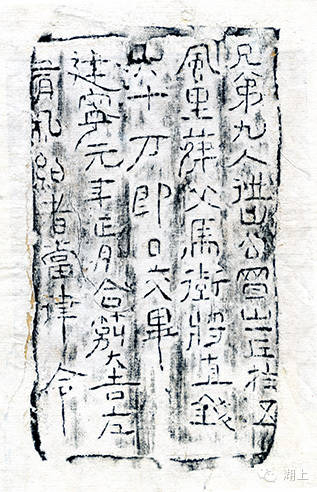 兄弟九人從山公買山一丘於五
風里葬父馬衛將直錢
六十万即日交畢
建寧元年正月合莂大吉左
有私約者當律令
湖上